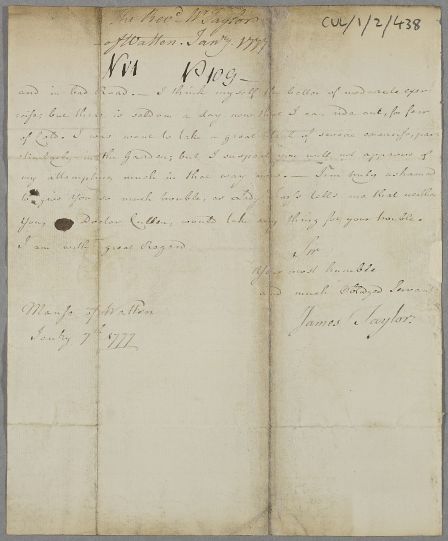 CUL/1/2/438
The Revd. Mr. Taylor
of Watten. Janry. 1777
No VI V P109
and in bad Road. — I think myself the better of moderate exer
cise; but there is seldom a day now that I can ride out, for fear
of Cold. I was wont to take a great of severe exercise, par
ticularly, in the Garden; but I suspect you will not approve of
my attempting much in that way now. — I'm truly ashamed
to give You so much trouble, as Lady tells me that neither
You, Doctor Cullen, would take any thing for your trouble.
I am with great Regard
Sir
Your most humble
and much Obliged Servant
James Taylor.
Manse of Watten
Janry 7th 1777